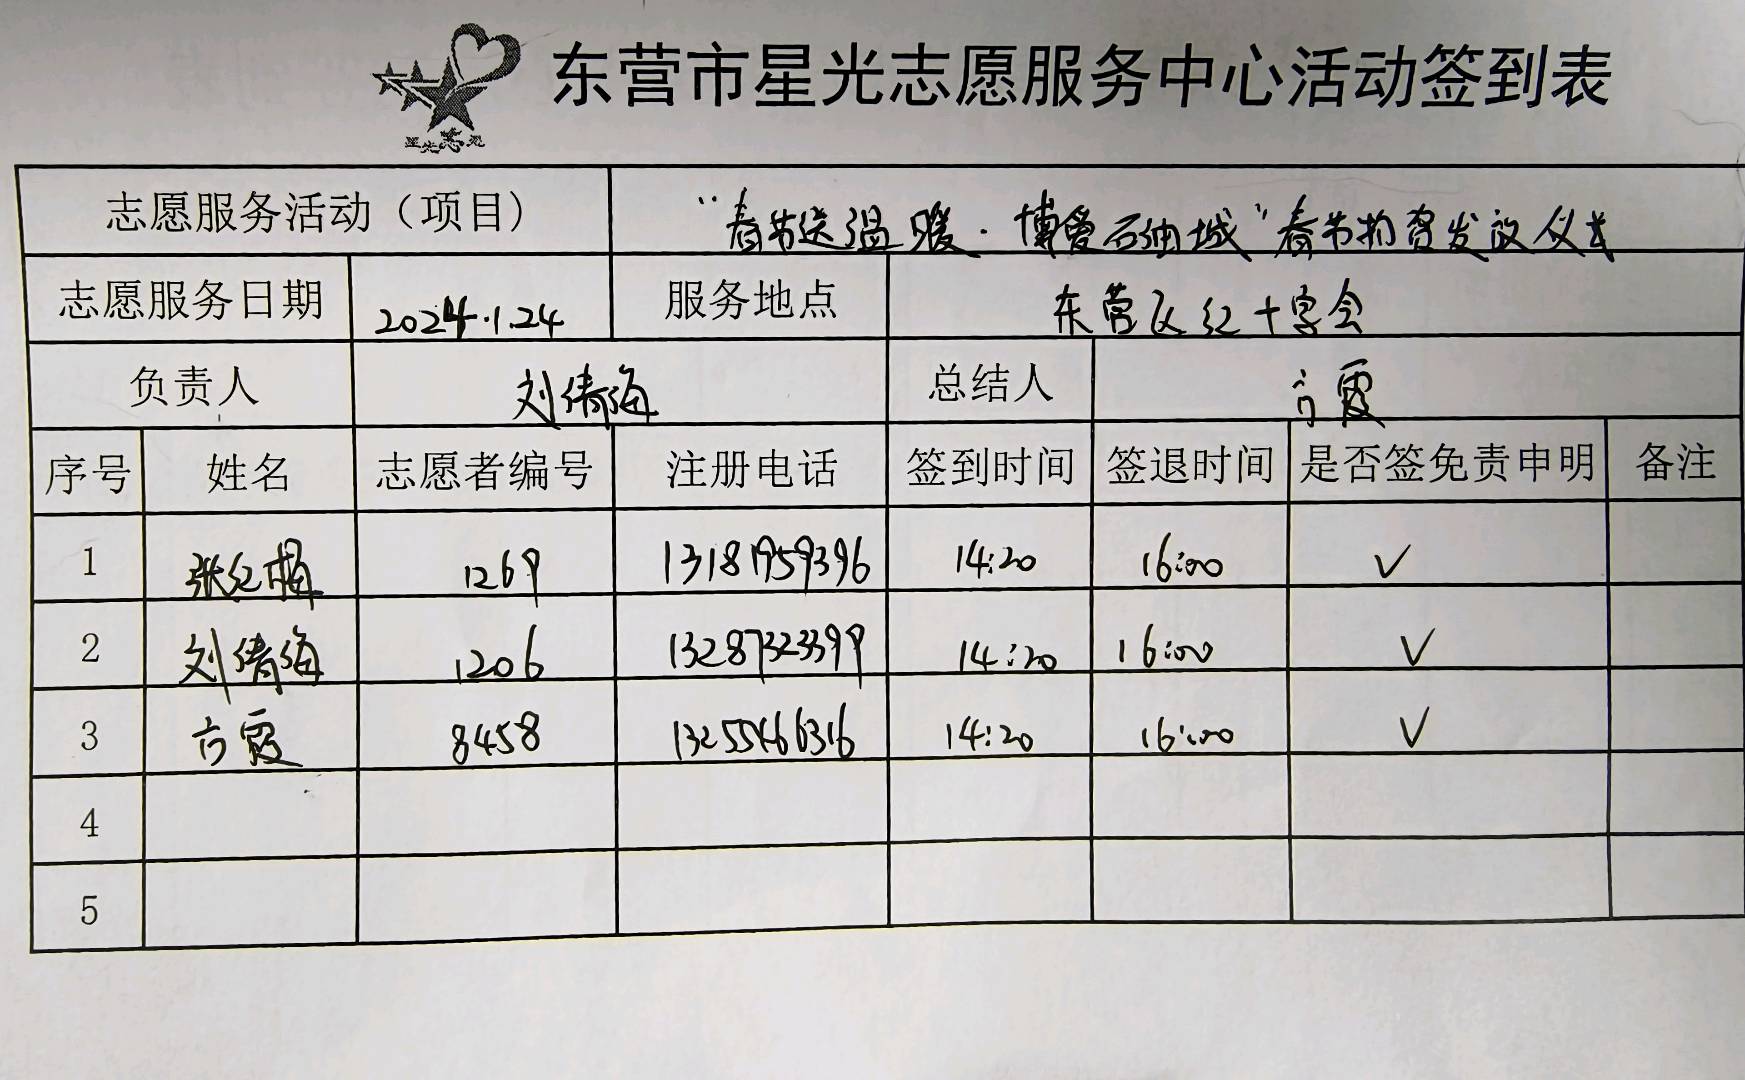 东营市星光志愿服务中心活动签到表
星光志愿
志愿服务活动（项目） “春节送温暖·博爱石油城”春节物资发放仪式
志愿服务日期 2024.1.24 服务地点 东营区红十字会
负责人 刘倩海 总结人 亓霞
序号 姓名 志愿者编号 注册电话 签到时间 签退时间 是否签免责申明 备注
1 张红梅 1269 13181959396 14:20 16:00 ✓
2 刘倩海 1206 13287323399 14:20 16:00 ✓
3 亓霞 8458 13255466316 14:20 16:00 ✓
4
5